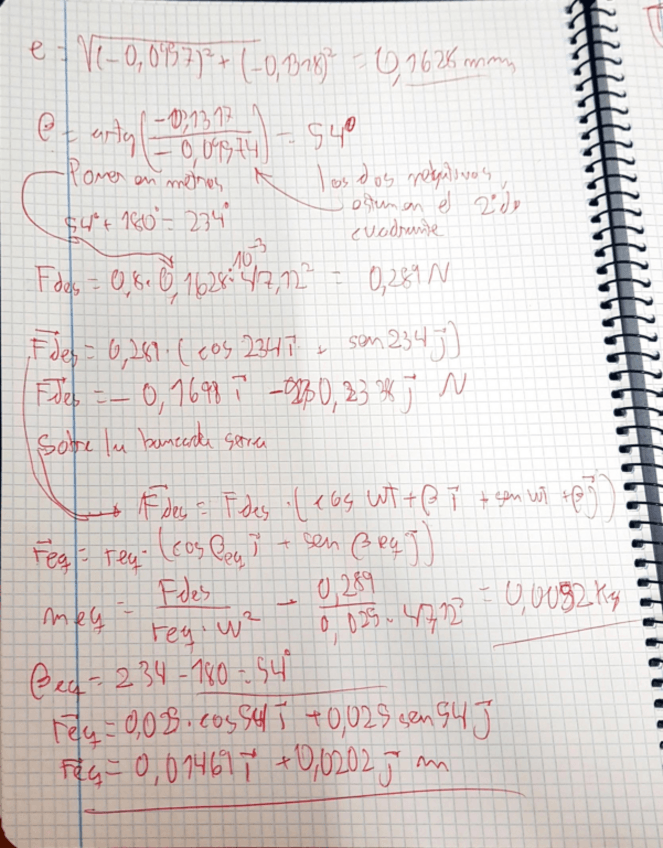 e = √((-0,0957)² + (-0,1318)²) = 0,1628 mm
β = artg(-0,1317 / -0,09574) = 54°
Poner en metros
los dos negativos,
54° + 180° = 234°
el 2º
cuadrante
Fdes = 0,8 · 0,1628·10⁻³ · 47,12² = 0,289 N
F⃗des = 0,289 · (cos 234 i⃗ + sen 234 j⃗)
F⃗des = - 0,1698 i⃗ - 0,2338 j⃗ N
Sobre la bancada seria
F⃗des = Fdes · (cos wt + β i⃗ + sen wt + β j⃗)
r⃗eq = req · (cos βeq i⃗ + sen βeq j⃗)
meq = Fdes / req · w² = 0,289 / 0,025 · 47,12² = 0,0052 kg
βeq = 234 - 180 = 54°
r⃗eq = 0,025 · cos 54 i⃗ + 0,025 sen 54 j⃗
r⃗eq = 0,01469 i⃗ + 0,0202 j⃗ m